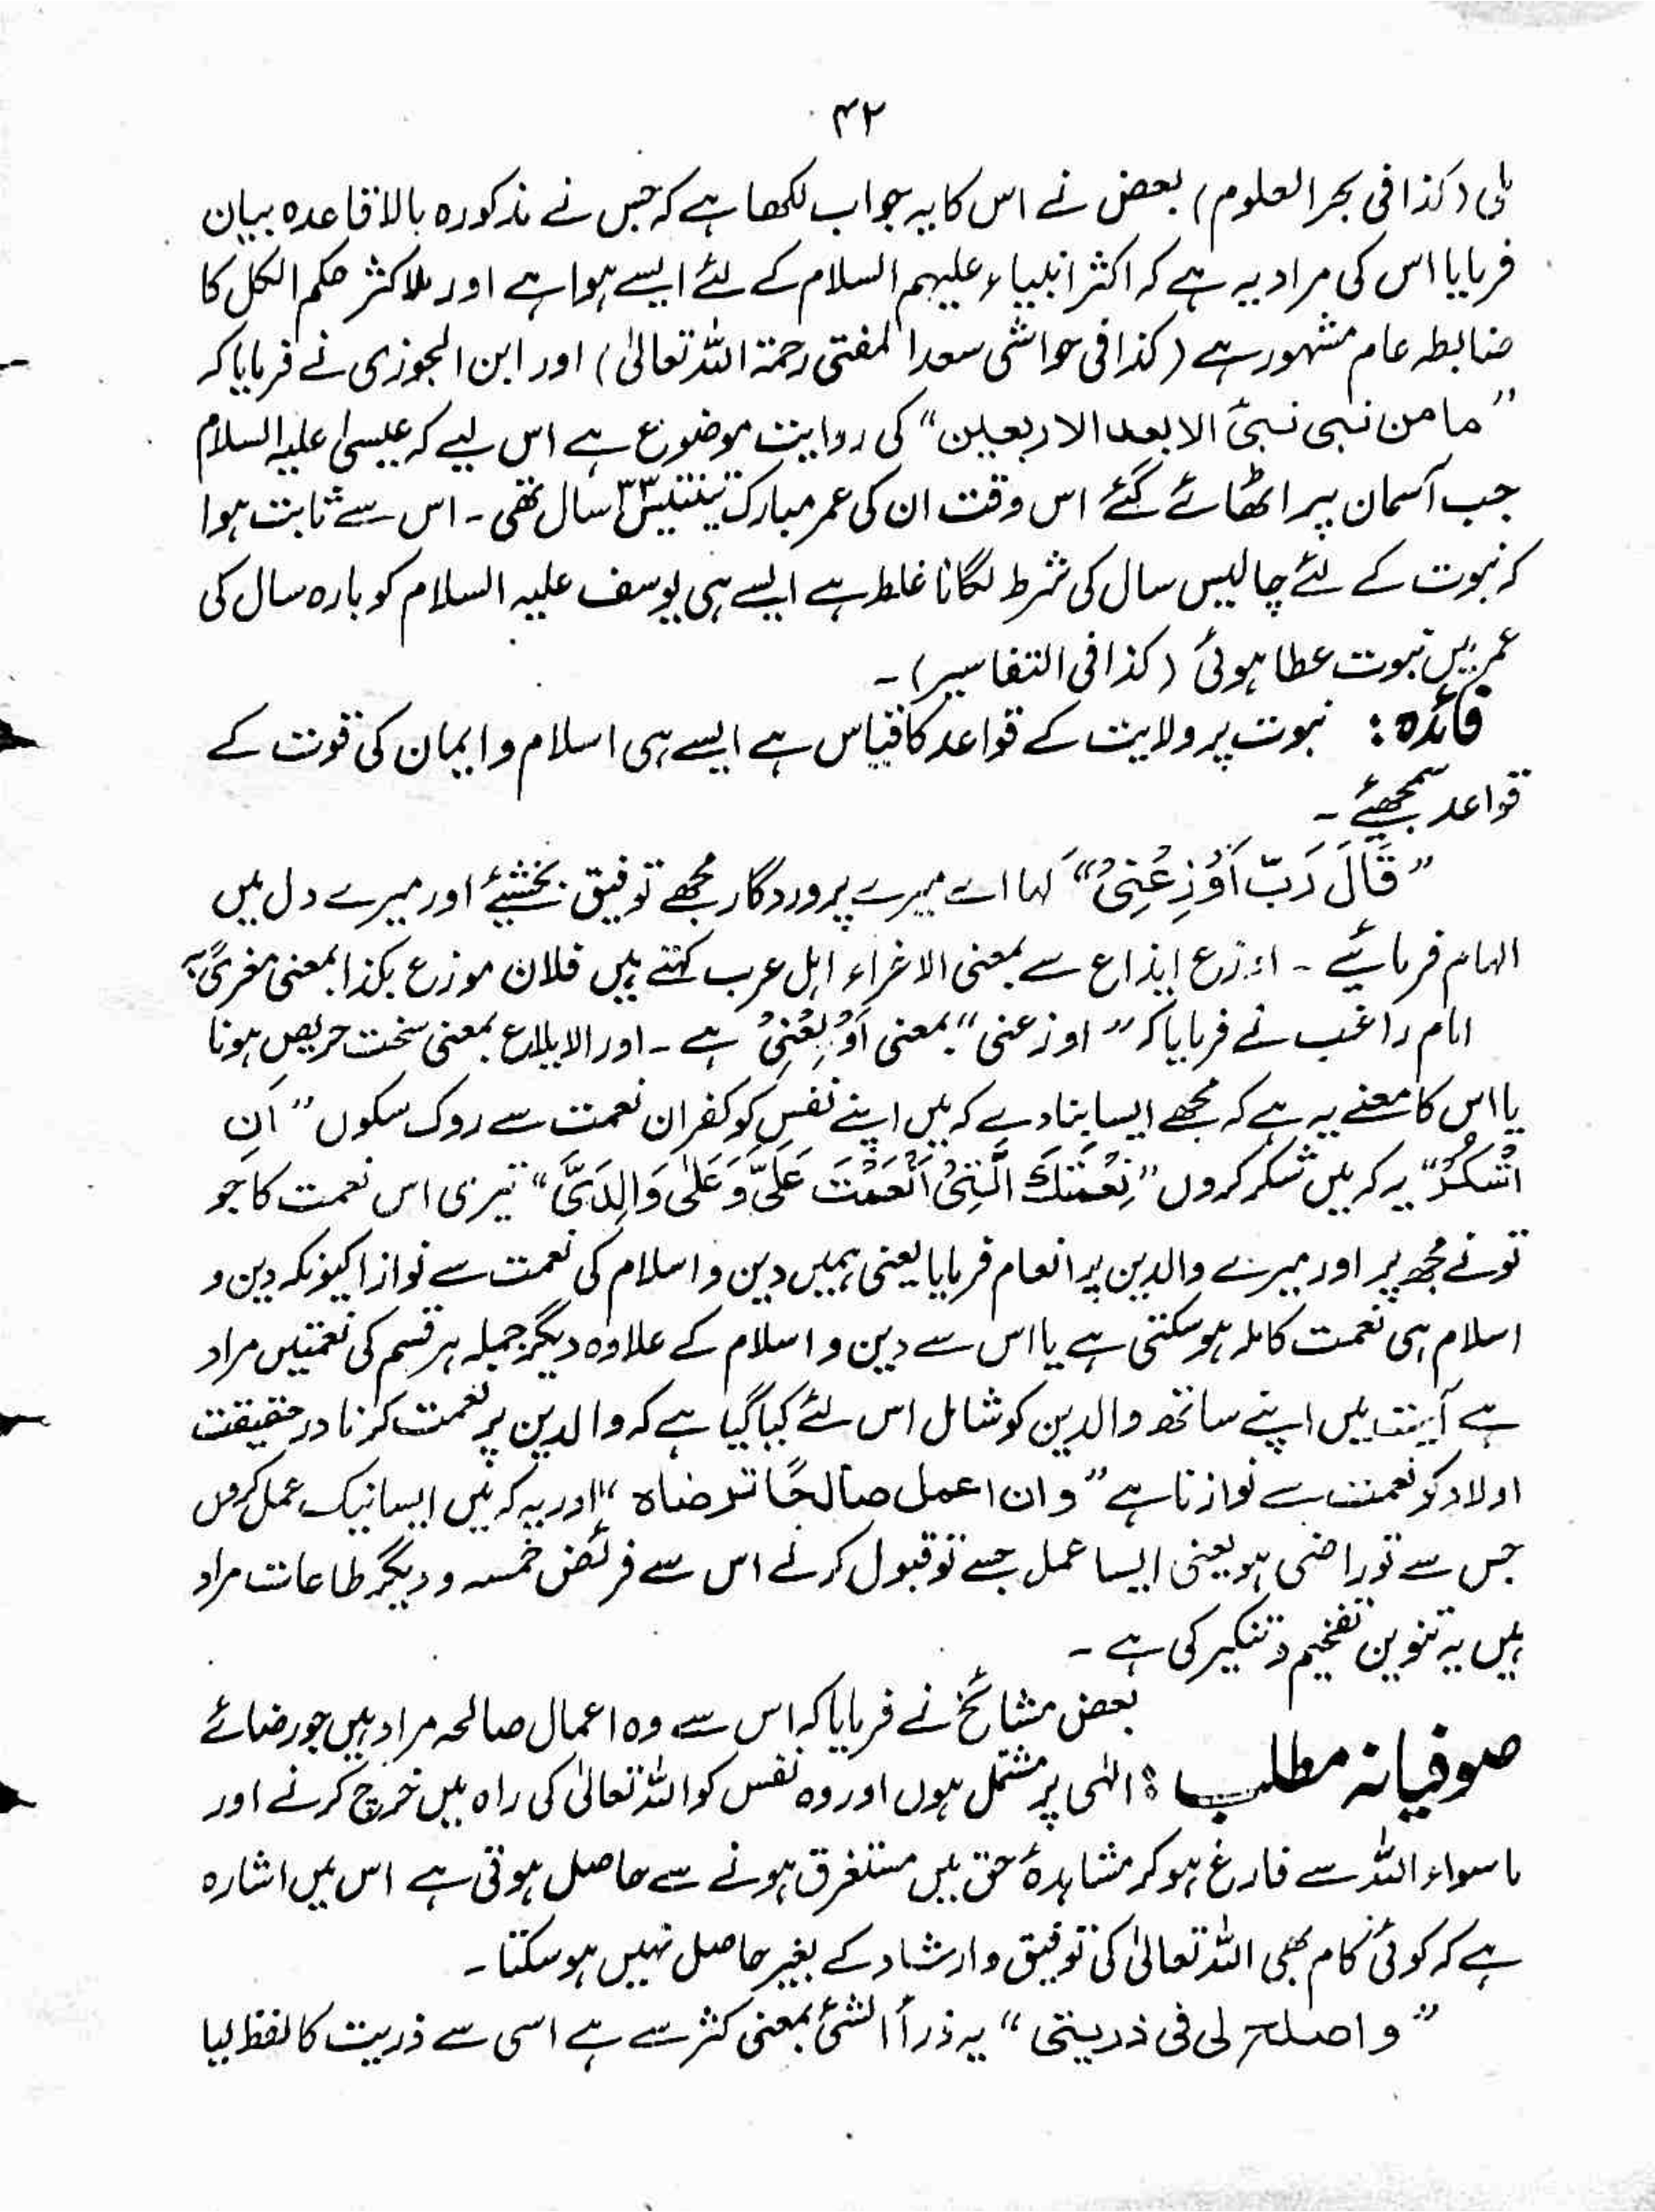 ۴۲
ملی (کذا فی بحر العلوم) بعض نے اس کا یہ جواب لکھا ہے کہ جس نے مذکورہ بالا قاعدہ بیان
فرمایا اس کی مراد یہ ہے کہ اکثر انبیاء علیہم السلام کے لئے ایسے ہوا ہے اور للاکثر حکم الکل کا
ضابطہ عام مشہور ہے (کذا فی حواشی سعد المفتی رحمۃ اللہ تعالیٰ) اور ابن الجوزی نے فرمایا کہ
”ما من نبی نبیٔ الا بعد الاربعین“ کی روایت موضوع ہے اس لیے کہ عیسیٰ علیہ السلام
جب آسمان پر اٹھائے گئے اس وقت ان کی عمر مبارک تینتیس ۳۳ سال تھی ۔ اس سے ثابت ہوا
کہ نبوت کے لئے چالیس سال کی شرط لگانا غلط ہے ایسے ہی یوسف علیہ السلام کو بارہ سال کی
عمر میں نبوت عطا ہوئی (کذا فی التفاسیر) ۔
فائدہ : نبوت پر ولایت کے قواعد کا قیاس ہے ایسے ہی اسلام و ایمان کی قوت کے
قواعد سمجھئے ۔
”قَالَ رَبِّ اَوْزِعْنِیْ“ کہا اے میرے پروردگار مجھے توفیق بخشیئے اور میرے دل میں
الہام فرمائیے ۔ اوزع ایذاع سے بمعنی الاغراء اہل عرب کہتے ہیں فلان موزع بکذا بمعنی مغریً بہ
امام راغب نے فرمایا کہ ”اوزعنی“ بمعنی اَوْلِعْنِیْ ہے ۔ اور الایلاع بمعنی سخت حریص ہونا
یا اس کا معنے یہ ہے کہ مجھے ایسا بنا دے کہ میں اپنے نفس کو کفران نعمت سے روک سکوں ”اَنْ
اَشْکُرَ“ یہ کہ میں شکر کروں ”نِعْمَتَکَ الَّتِیْ اَنْعَمْتَ عَلَیَّ وَعَلٰی وَالِدَیَّ“ تیری اس نعمت کا جو
تو نے مجھ پر اور میرے والدین پر انعام فرمایا یعنی ہمیں دین و اسلام کی نعمت سے نوازا کیونکہ دین و
اسلام ہی نعمت کاملہ ہو سکتی ہے یا اس سے دین و اسلام کے علاوہ دیگر جملہ ہر قسم کی نعمتیں مراد
ہے آیت میں اپنے ساتھ والدین کو شامل اس لئے کیا گیا ہے کہ والدین پر نعمت کرنا در حقیقت
اولاد کو نعمت سے نوازنا ہے ”و ان اعمل صالحًا ترضاہ“ اور یہ کہ میں ایسا نیک عمل کروں
جس سے تو راضی ہو یعنی ایسا عمل جسے تو قبول کرلے اس سے فرائض خمسہ و دیگر طاعات مراد
ہیں یہ تنوین تفخیم و تنکیر کی ہے ۔
بعض مشائخ نے فرمایا کہ اس سے وہ اعمال صالحہ مراد ہیں جو رضائے
صوفیانہ مطلب : الٰہی پر مشتمل ہوں اور وہ نفس کو اللہ تعالیٰ کی راہ میں خرچ کرنے اور
ماسواء اللہ سے فارغ ہو کر مشاہدۂ حق میں مستغرق ہونے سے حاصل ہوتی ہے اس میں اشارہ
ہے کہ کوئی کام بھی اللہ تعالیٰ کی توفیق و ارشاد کے بغیر حاصل نہیں ہو سکتا ۔
”و اصلح لی فی ذریتی“ یہ ذرأ الشئ بمعنی کثر سے ہے اسی سے ذریت کا لفظ لیا